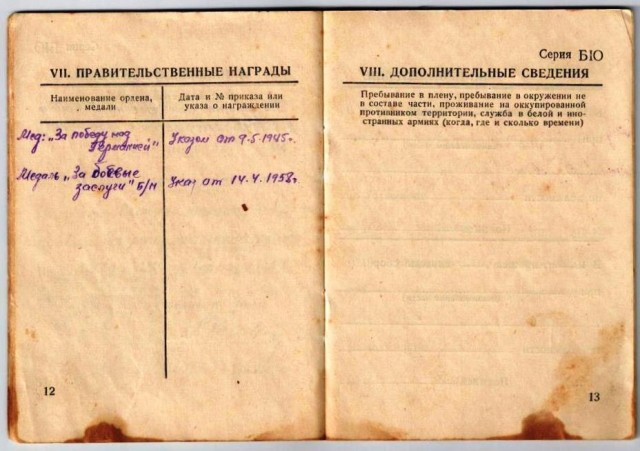 VII. ПРАВИТЕЛЬСТВЕННЫЕ НАГРАДЫ
Наименование ордена,
медали
Дата и № приказа или
указа о награждении
Мед: „За победу над
Германией"
Указом от 9-5-1945г.
Медаль „За боевые
заслуги" б/н
Указ от 14.4.1958г.
12
Серия БЮ
VIII. ДОПОЛНИТЕЛЬНЫЕ СВЕДЕНИЯ
Пребывание в плену, пребывание в окружении не
в составе части, проживание на оккупированной
противником территории, служба в белой и ино-
странных армиях (когда, где и сколько времени)
13